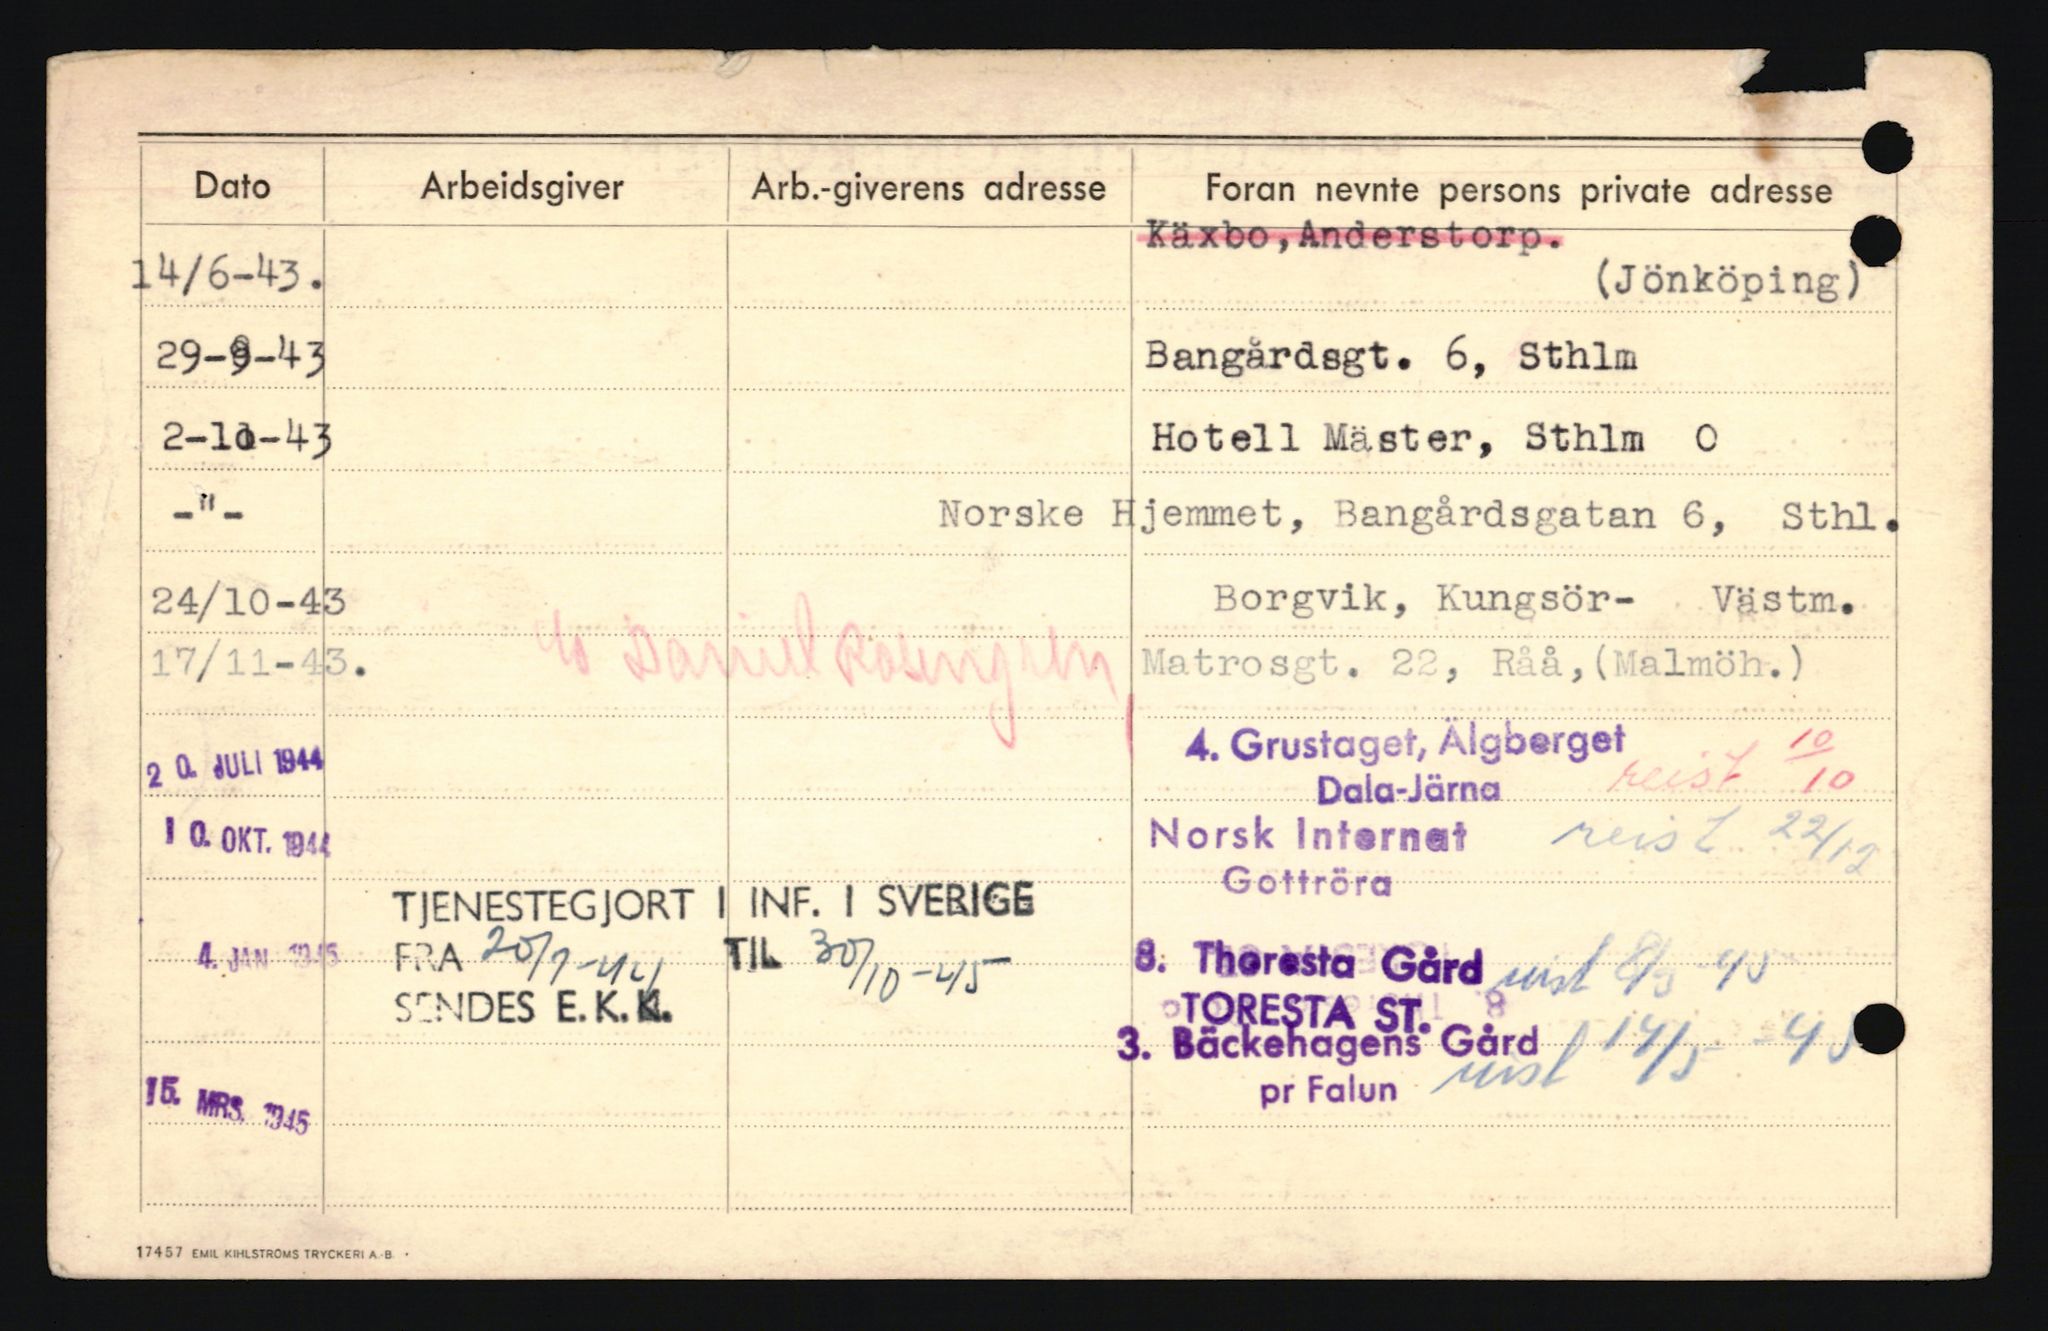 Dato Arbeidsgiver Arb.-giverens adresse Foran nevnte persons private adresse
Käxbo, Anderstorp.
14/6-43. (Jönköping)
29-9-43 Bangårdsgt. 6, Sthlm
2-10-43 Hotell Mäster, Sthlm O
-"- Norske Hjemmet, Bangårdsgatan 6, Sthl.
24/10-43 Borgvik, Kungsör- Västm.
c/o Daniel Rosengren,
17/11-43. Matrosgt. 22, Råå, (Malmöh.)
20. JULI 1944 4. Grustaget, Älgberget reist 10/10
Dala-Järna
10. OKT. 1944 Norsk Internat reist 22/12
Gottröra
TJENESTEGJORT I INF. I SVERIGE
4. JAN 1945 FRA 20/7-44 TIL 30/10-45 8. Thoresta Gård reist 8/3-45
SENDES E.K.K. TORESTA ST.
3. Bäckehagens Gård reist 14/5-45
15. MRS. 1945 pr Falun
17457 EMIL KIHLSTRÖMS TRYCKERI A.-B.